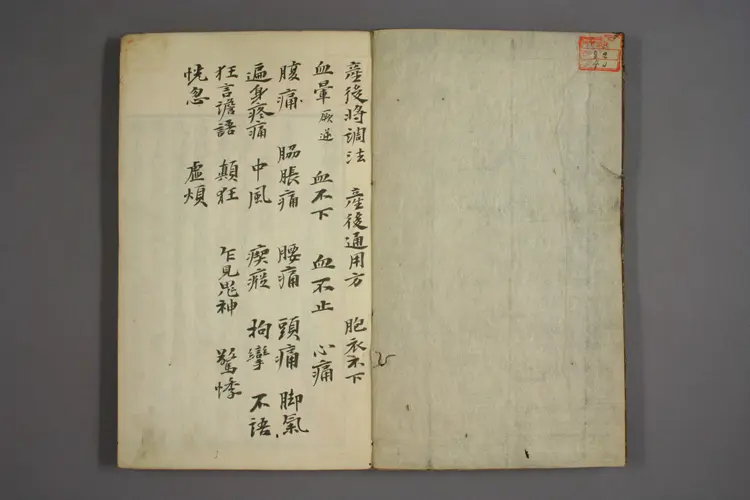 産後将調法 産後通用方 胞衣不下
血暈 厥逆 血不下 血不止 心痛
腹痛 脇脹痛 腰痛 頭痛 脚氣
遍身疼痛 中風 瘈瘲 拘攣 不語
狂言譫語 顛狂 乍見鬼神 驚悸
恍忽 虚煩
25